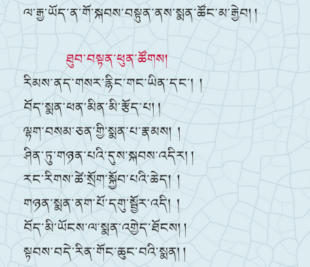 ལ་རྒྱ་ཡོད་ན་གོ་སྐབས་བསྟུན་ནས་སྨན་ཚོང་མ་རྒྱེབ། །
ཐུབ་བསྟན་ཕུན་ཚོགས།
རིམས་ནད་གསར་རྙིང་གང་ཡིན་དང་། །
བོད་སྨན་ཕན་མིན་མི་རྩོད་པ། །
ལྷག་བསམ་ཅན་གྱི་སྨན་པ་རྣམས། །
ཤིན་ཏུ་གཉན་པའི་དུས་སྐབས་འདིར། །
རང་རིགས་ཚེ་སྲོག་སྐྱོབ་པའི་ཆེད། །
གཉན་སྨན་ནག་པོ་དགུ་སྦྱོར་འདི། །
བོད་མི་ཡོངས་ལ་སྨན་འགྱེད་ཐོངས། །
སྟབས་བདེ་རིན་གོང་ཆུང་བའི་སྨན། །